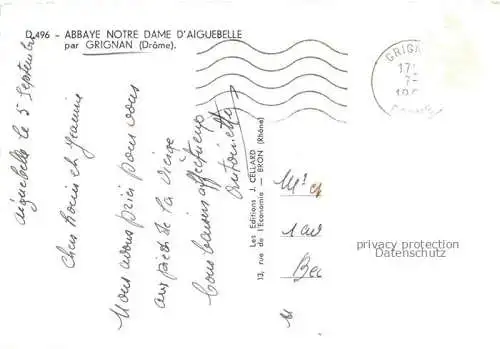 D.496 - ABBAYE NOTRE DAME D'AIGUEBELLE
par GRIGNAN (Drôme).
Aiguebelle le 5 Septembre
Chers et Jeannie
Nous avons prié pour vous
aux pieds de la Vierge
Bons baisers affectueux
Antoinette
Les Editions J. CELLARD
13, rue de l'Economie - BRON (Rhône)
GRIGN
17
privacy protection
Datenschutz